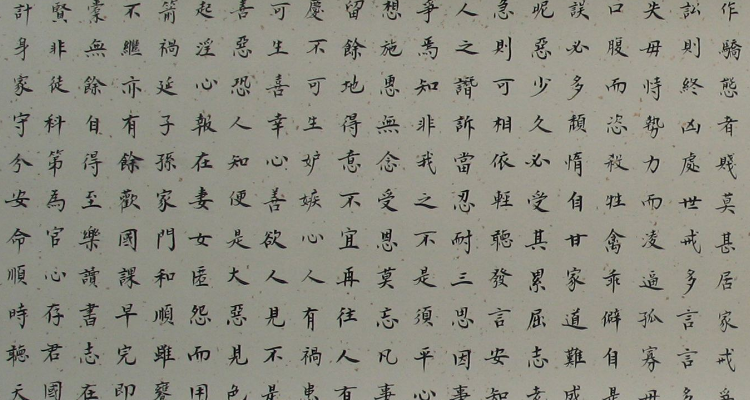 作驕態者賤莫甚居家戒爭
訟則終凶處世戒多言言多
失毋恃勢力而凌逼孤寡毋
口腹而恣殺牲禽乖僻自是
誤必多頹惰自甘家道難成
昵惡少久必受其累屈志老
急則可相依輕聽發言安知
人之譖訴當忍耐三思因事
爭焉知非我之不是須平心
想施惠無念受恩莫忘凡事
留餘地得意不宜再往人有
慶不可生妒嫉心人有禍患
可生喜幸心善欲人見不是
善惡恐人知便是大惡見色
起淫心報在妻女匿怨而用
箭禍延子孫家門和順雖饔
不繼亦有餘歡國課早完即
橐無餘自得至樂讀書志在
賢非徒科第為官心存君國
計身家守分安命順時聽天